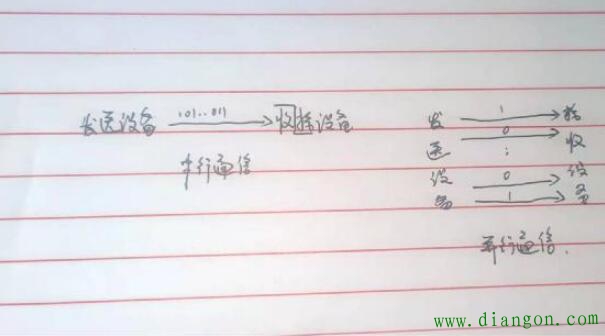 发送设备 101..011 收择设备
串行通信
发 1 接
送 0 收
:
设 0 设
备 1 备
并行通信.
www.diangon.com